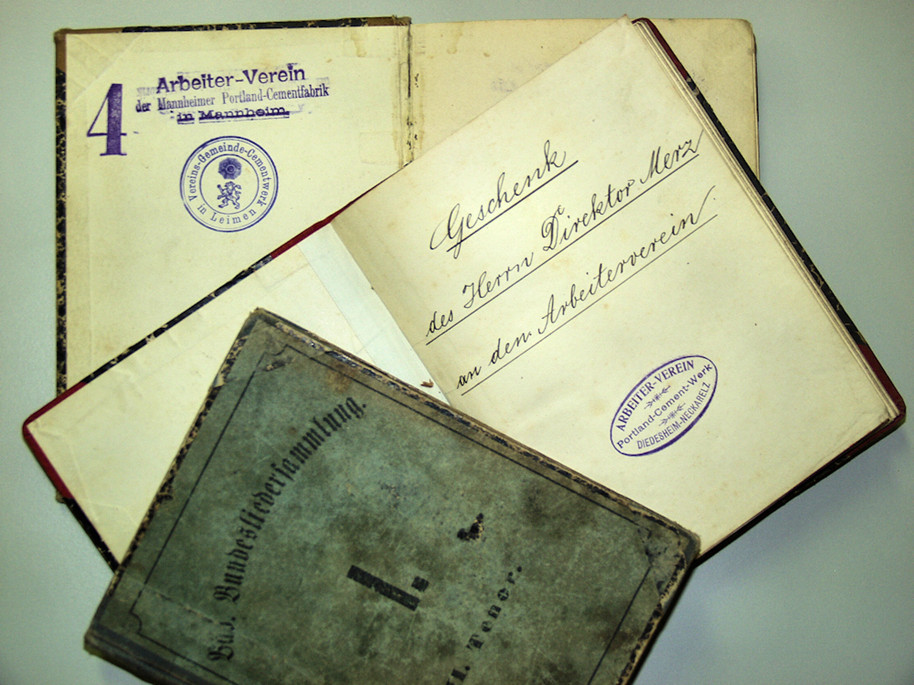 4
Arbeiter-Verein
der Mannheimer Portland-Cementfabrik
in Mannheim.
Vereins-Gemeinde-Cementwerk
in Leimen
Geschenk
des Herrn Direktor Merz
an den Arbeiterverein.
ARBEITER-VEREIN
Portland-Cement-Werk
DIEDESHEIM-NECKARELZ
Bad. Bundesliedersammlung.
I.
Tenor.